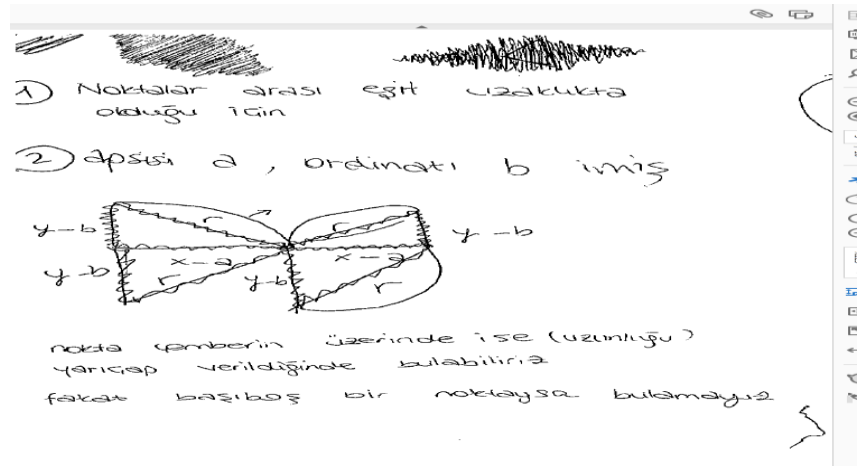 1) Noktalar arası eşit uzaklıkta
olduğu için
2) apsisi a, ordinatı b imiş
r r
y-b y-b
x-a x-a
y-b r y-b r
nokta çemberin üzerinde ise (uzunluğu)
yarıçap verildiğinde bulabiliriz
fakat başıboş bir noktaysa bulamayız